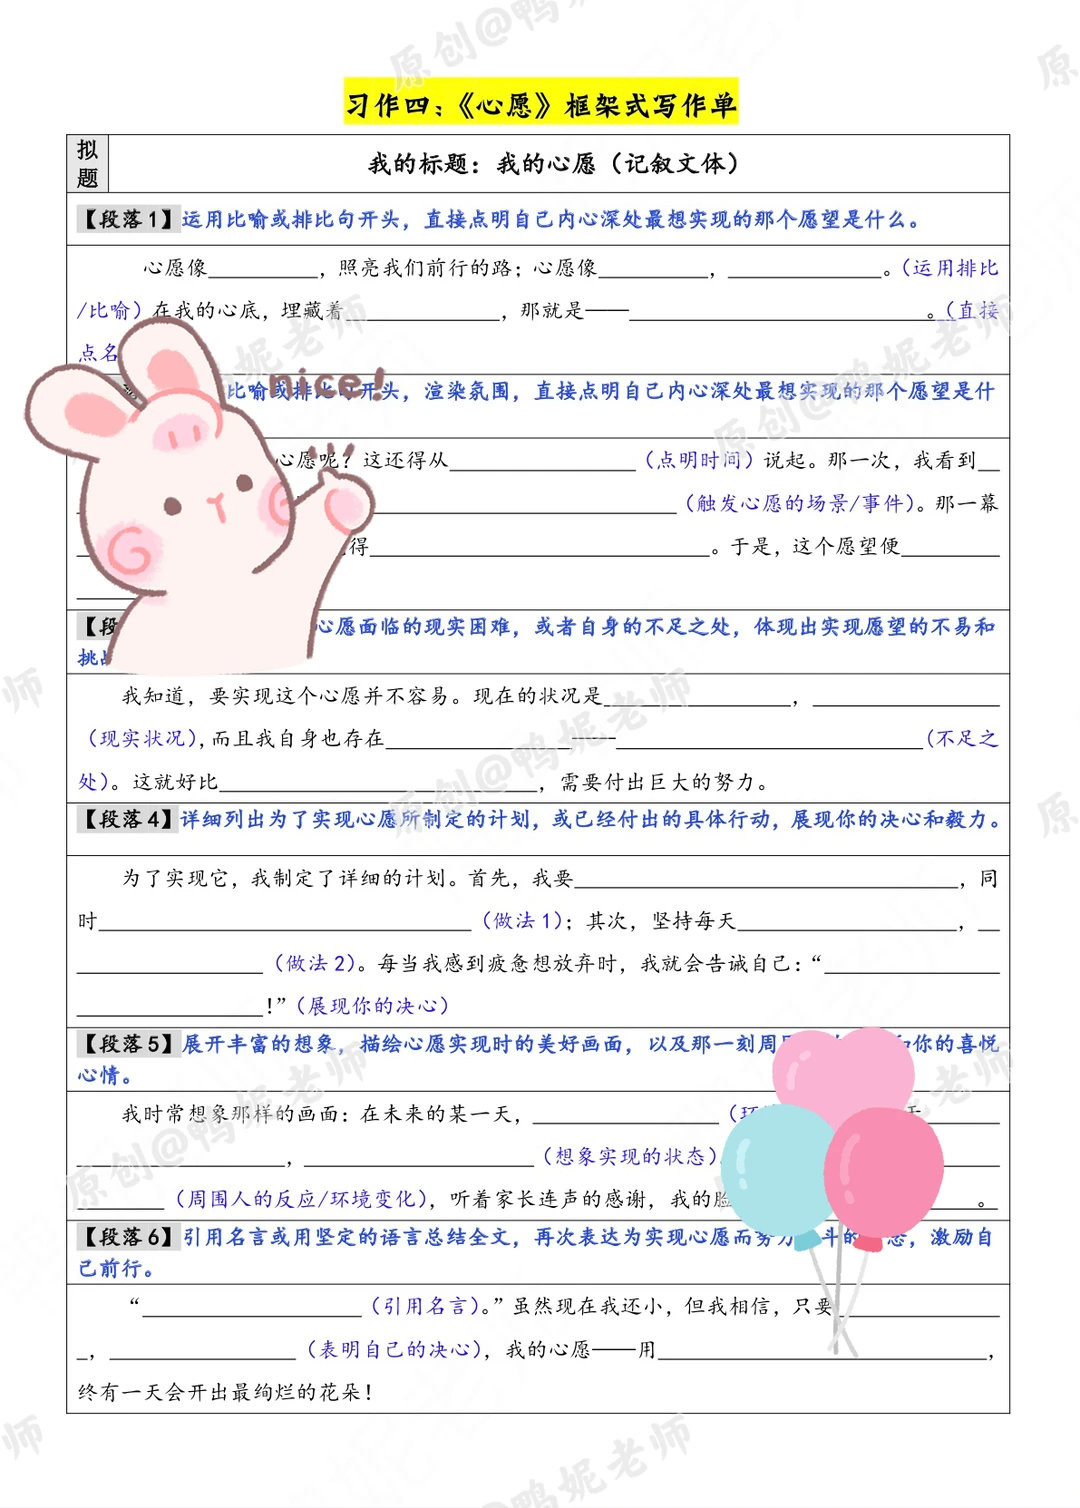 原创@鸭妮老师
习作四：《心愿》框架式写作单
拟题
我的标题：我的心愿（记叙文体）
【段落1】运用比喻或排比句开头，直接点明自己内心深处最想实现的那个愿望是什么。
心愿像__________，照亮我们前行的路；心愿像__________，______________。（运用排比
/比喻）在我的心底，埋藏着______________，那就是——___________________________。（直接
点名
nice!
比喻或排比句开头，渲染氛围，直接点明自己内心深处最想实现的那个愿望是什
心愿呢？这还得从_________________（点明时间）说起。那一次，我看到__
____________________________（触发心愿的场景/事件）。那一幕
得_______________________________。于是，这个愿望便_________
【段 心愿面临的现实困难，或者自身的不足之处，体现出实现愿望的不易和
挑战
我知道，要实现这个心愿并不容易。现在的状况是_________________，_________________
（现实状况），而且我自身也存在_________________-----____________________________（不足之
处）。这就好比_____________________________，需要付出巨大的努力。
【段落4】详细列出为了实现心愿所制定的计划，或已经付出的具体行动，展现你的决心和毅力。
为了实现它，我制定了详细的计划。首先，我要___________________________________，同
时__________________________________（做法1）；其次，坚持每天____________________，__
_________________（做法2）。每当我感到疲惫想放弃时，我就会告诫自己：“________________
_________________！”（展现你的决心）
【段落5】展开丰富的想象，描绘心愿实现时的美好画面，以及那一刻周 你的喜悦
心情。
我时常想象那样的画面：在未来的某一天，_________________（环
___________________，_____________________（想象实现的状态）
________（周围人的反应/环境变化），听着家长连声的感谢，我的脸 ______。
【段落6】引用名言或用坚定的语言总结全文，再次表达为实现心愿而努力 斗的 态，激励自
己前行。
“____________________（引用名言）。”虽然现在我还小，但我相信，只要_______________
_，_________________（表明自己的决心），我的心愿——用______________________________，
终有一天会开出最绚烂的花朵！